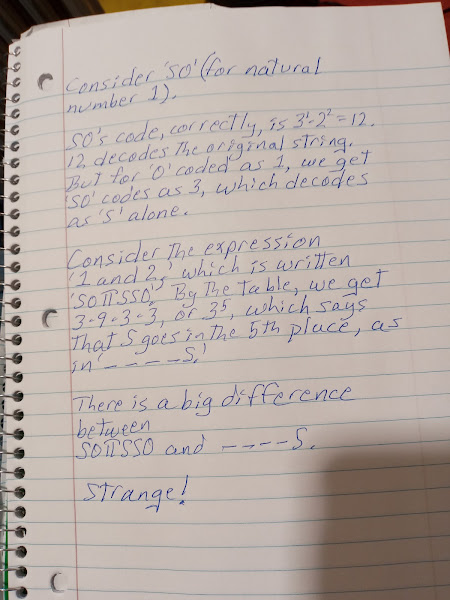 Consider 'SO' (for natural
number 1).
SO's code, correctly, is 3¹·2²=12.
12 decodes the original string.
But for 'O' coded as 1, we get
'SO' codes as 3, which decodes
as 'S' alone.
Consider the expression
'1 and 2,' which is written
'SOπSSO.' By the table, we get
3·9·3·3, or 3⁵, which says
that S goes in the 5th place, as
in '– – – – –S.'
There is a big difference
between
SOπSSO and – – – –S.
Strange!